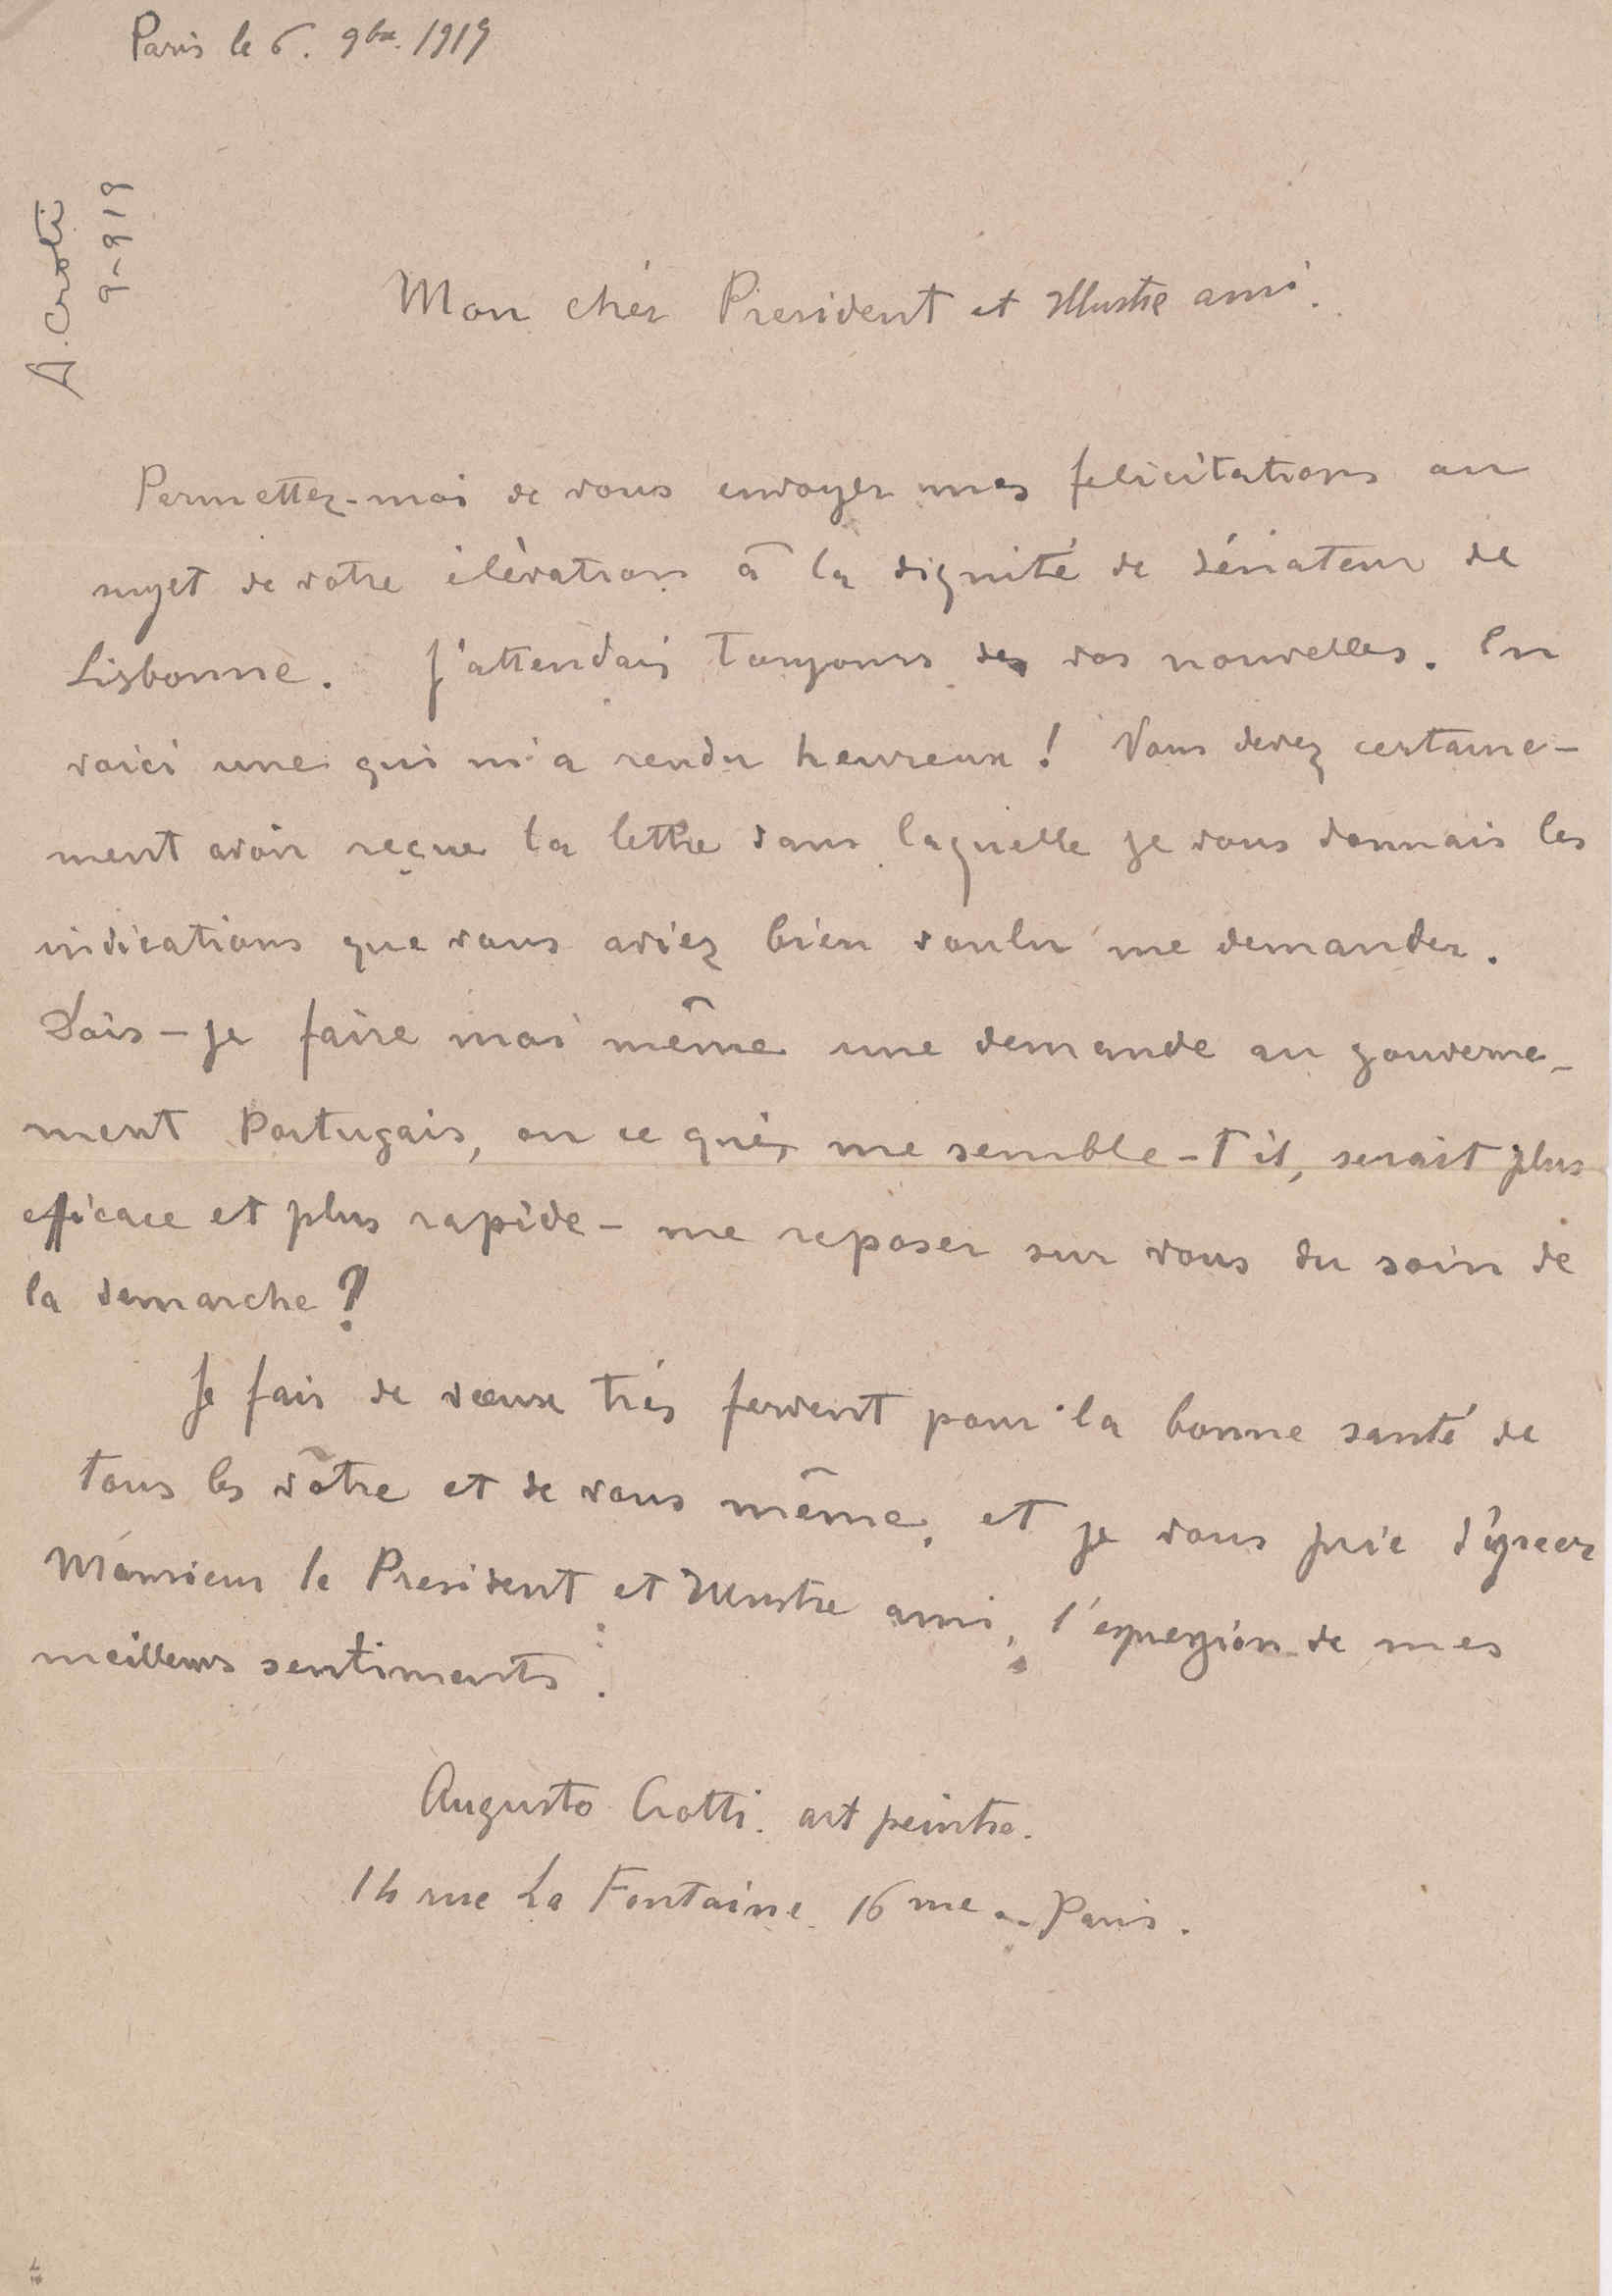 Paris le 6. 9bre. 1919
A. Crotti
9-919
Mon chér President et Illustre ami.
Permettez-moi de vous envoyer mes felicitations au
sujet de votre élèvation â la dignité de Sénateur de
Lisbonne. J'attendais toujours des vos nouvelles. En
voici une qui m'a rendu heureux! Vous devez certaine-
ment avoir reçue la lettre dans laquelle je vous donnais les
indications que vous aviez bien voulu me demander.
Dois-je faire moi même une demande au gouverne-
ment Portugais, ou ce qui, me semble-t'il, serait plus
efficace et plus rapide- me reposer sur vous du soin de
la demarche?
Je fais de vœux trés fervent pour la bonne santé de
tous les vôtre et de vous même, et je vous prie d'gréer
Monsieur le President et Illustre ami, l'expression de mes
meilleurs sentiments.
Augusto Crotti. art peintre.
14 rue La Fontaine. 16 me - Paris.